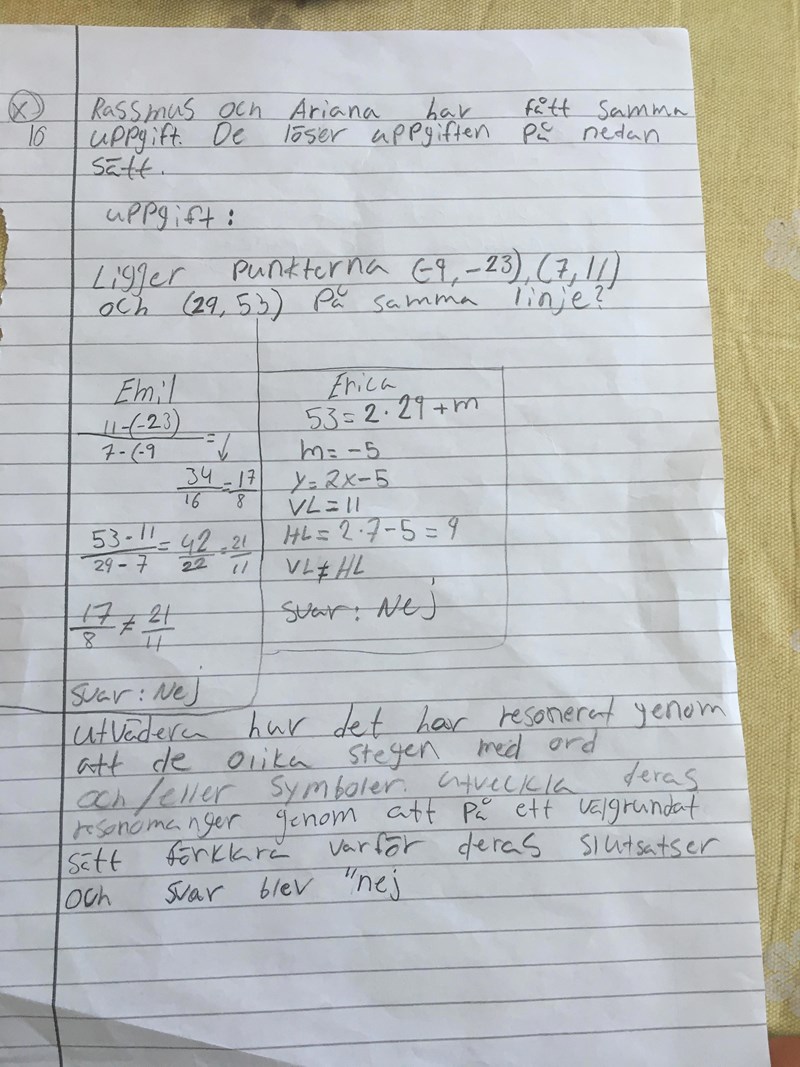 X
16
Rassmus och Ariana har fått samma
uppgift. De löser uppgiften på nedan
sätt.
uppgift:
Ligger punkterna (-9, -23), (7, 11)
och (29, 53) på samma linje?
Emil
11-(-23)
7-(-9
= ↓
34/16 = 17/8
53-11/29-7 = 42/22 = 21/11
17/8 ≠ 21/11
svar: Nej
Erica
53 = 2·29+m
m = -5
y = 2x-5
VL = 11
HL = 2·7-5 = 9
VL ≠ HL
svar: Nej
utvädera hur det har resonerat genom
att de olika stegen med ord
och/eller symboler. utveckla deras
resonomanger genom att på ett välgrundat
sätt förklara varför deras slutsatser
och svar blev "nej